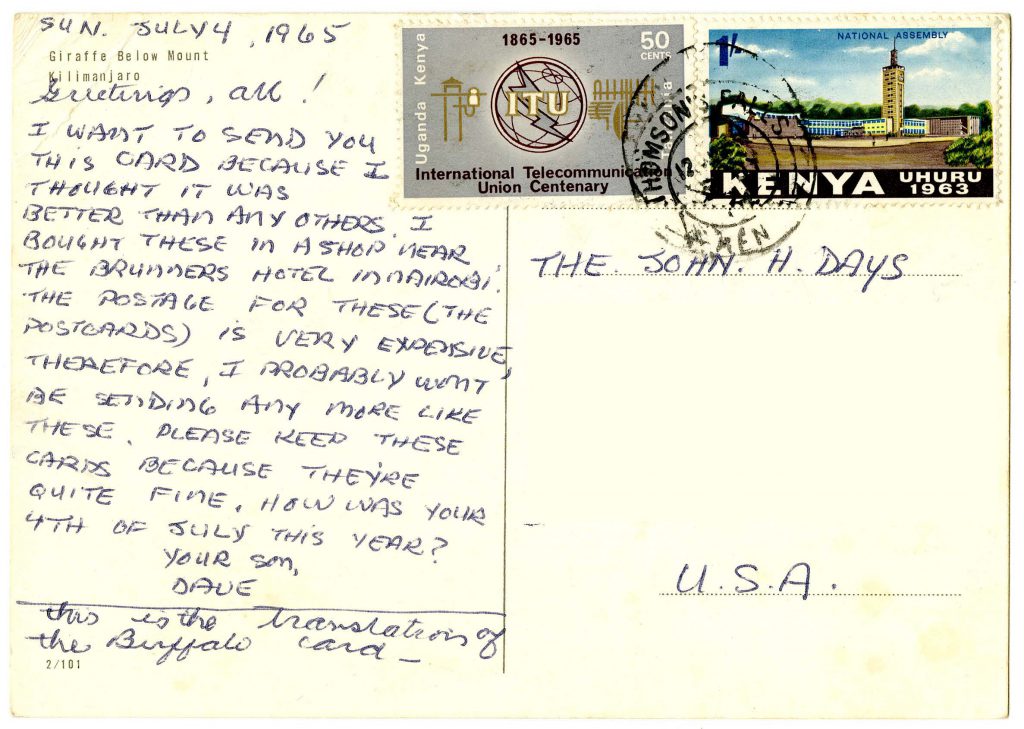 SUN. JULY 4, 1965
Giraffe Below Mount
Kilimanjaro
Greetings, all!
I WANT TO SEND YOU
THIS CARD BECAUSE I
THOUGHT IT WAS
BETTER THAN ANY OTHERS. I
BOUGHT THESE IN A SHOP NEAR
THE BRUNNERS HOTEL IN NAIROBI.
THE POSTAGE FOR THESE (THE
POSTCARDS) IS VERY EXPENSIVE,
THEREFORE, I PROBABLY WONT
BE SENDING ANY MORE LIKE
THESE. PLEASE KEEP THESE
CARDS BECAUSE THEY'RE
QUITE FINE. HOW WAS YOUR
4TH OF JULY THIS YEAR?
YOUR SON,
DAVE
this is the translation of
the Buffalo card —
2/101
1865-1965
50
CENTS
Uganda Kenya
ITU
International Telecommunication
Union Centenary
1/-
NATIONAL ASSEMBLY
KENYA UHURU
1963
THOMSON'S FALLS
KEN
THE. JOHN. H. DAYS
U.S.A.